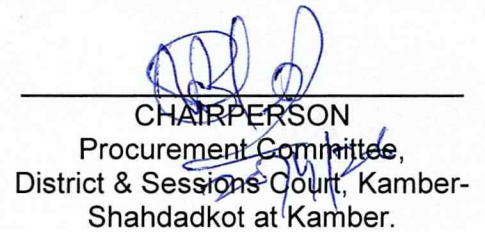 CHAIRPERSON
Procurement Committee,
District & Sessions Court, Kamber-
Shahdadkot at Kamber.